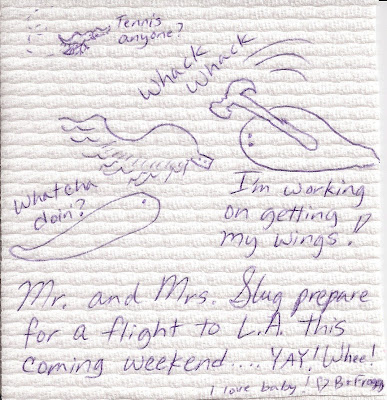 Tennis
anyone?
Whack
Whack
Whatcha
doin?
I'm working
on getting
my wings!
Mr. and Mrs. Slug prepare
for a flight to L.A. this
coming weekend.... YAY! Whee!
I love baby! ♡ B+Froggy